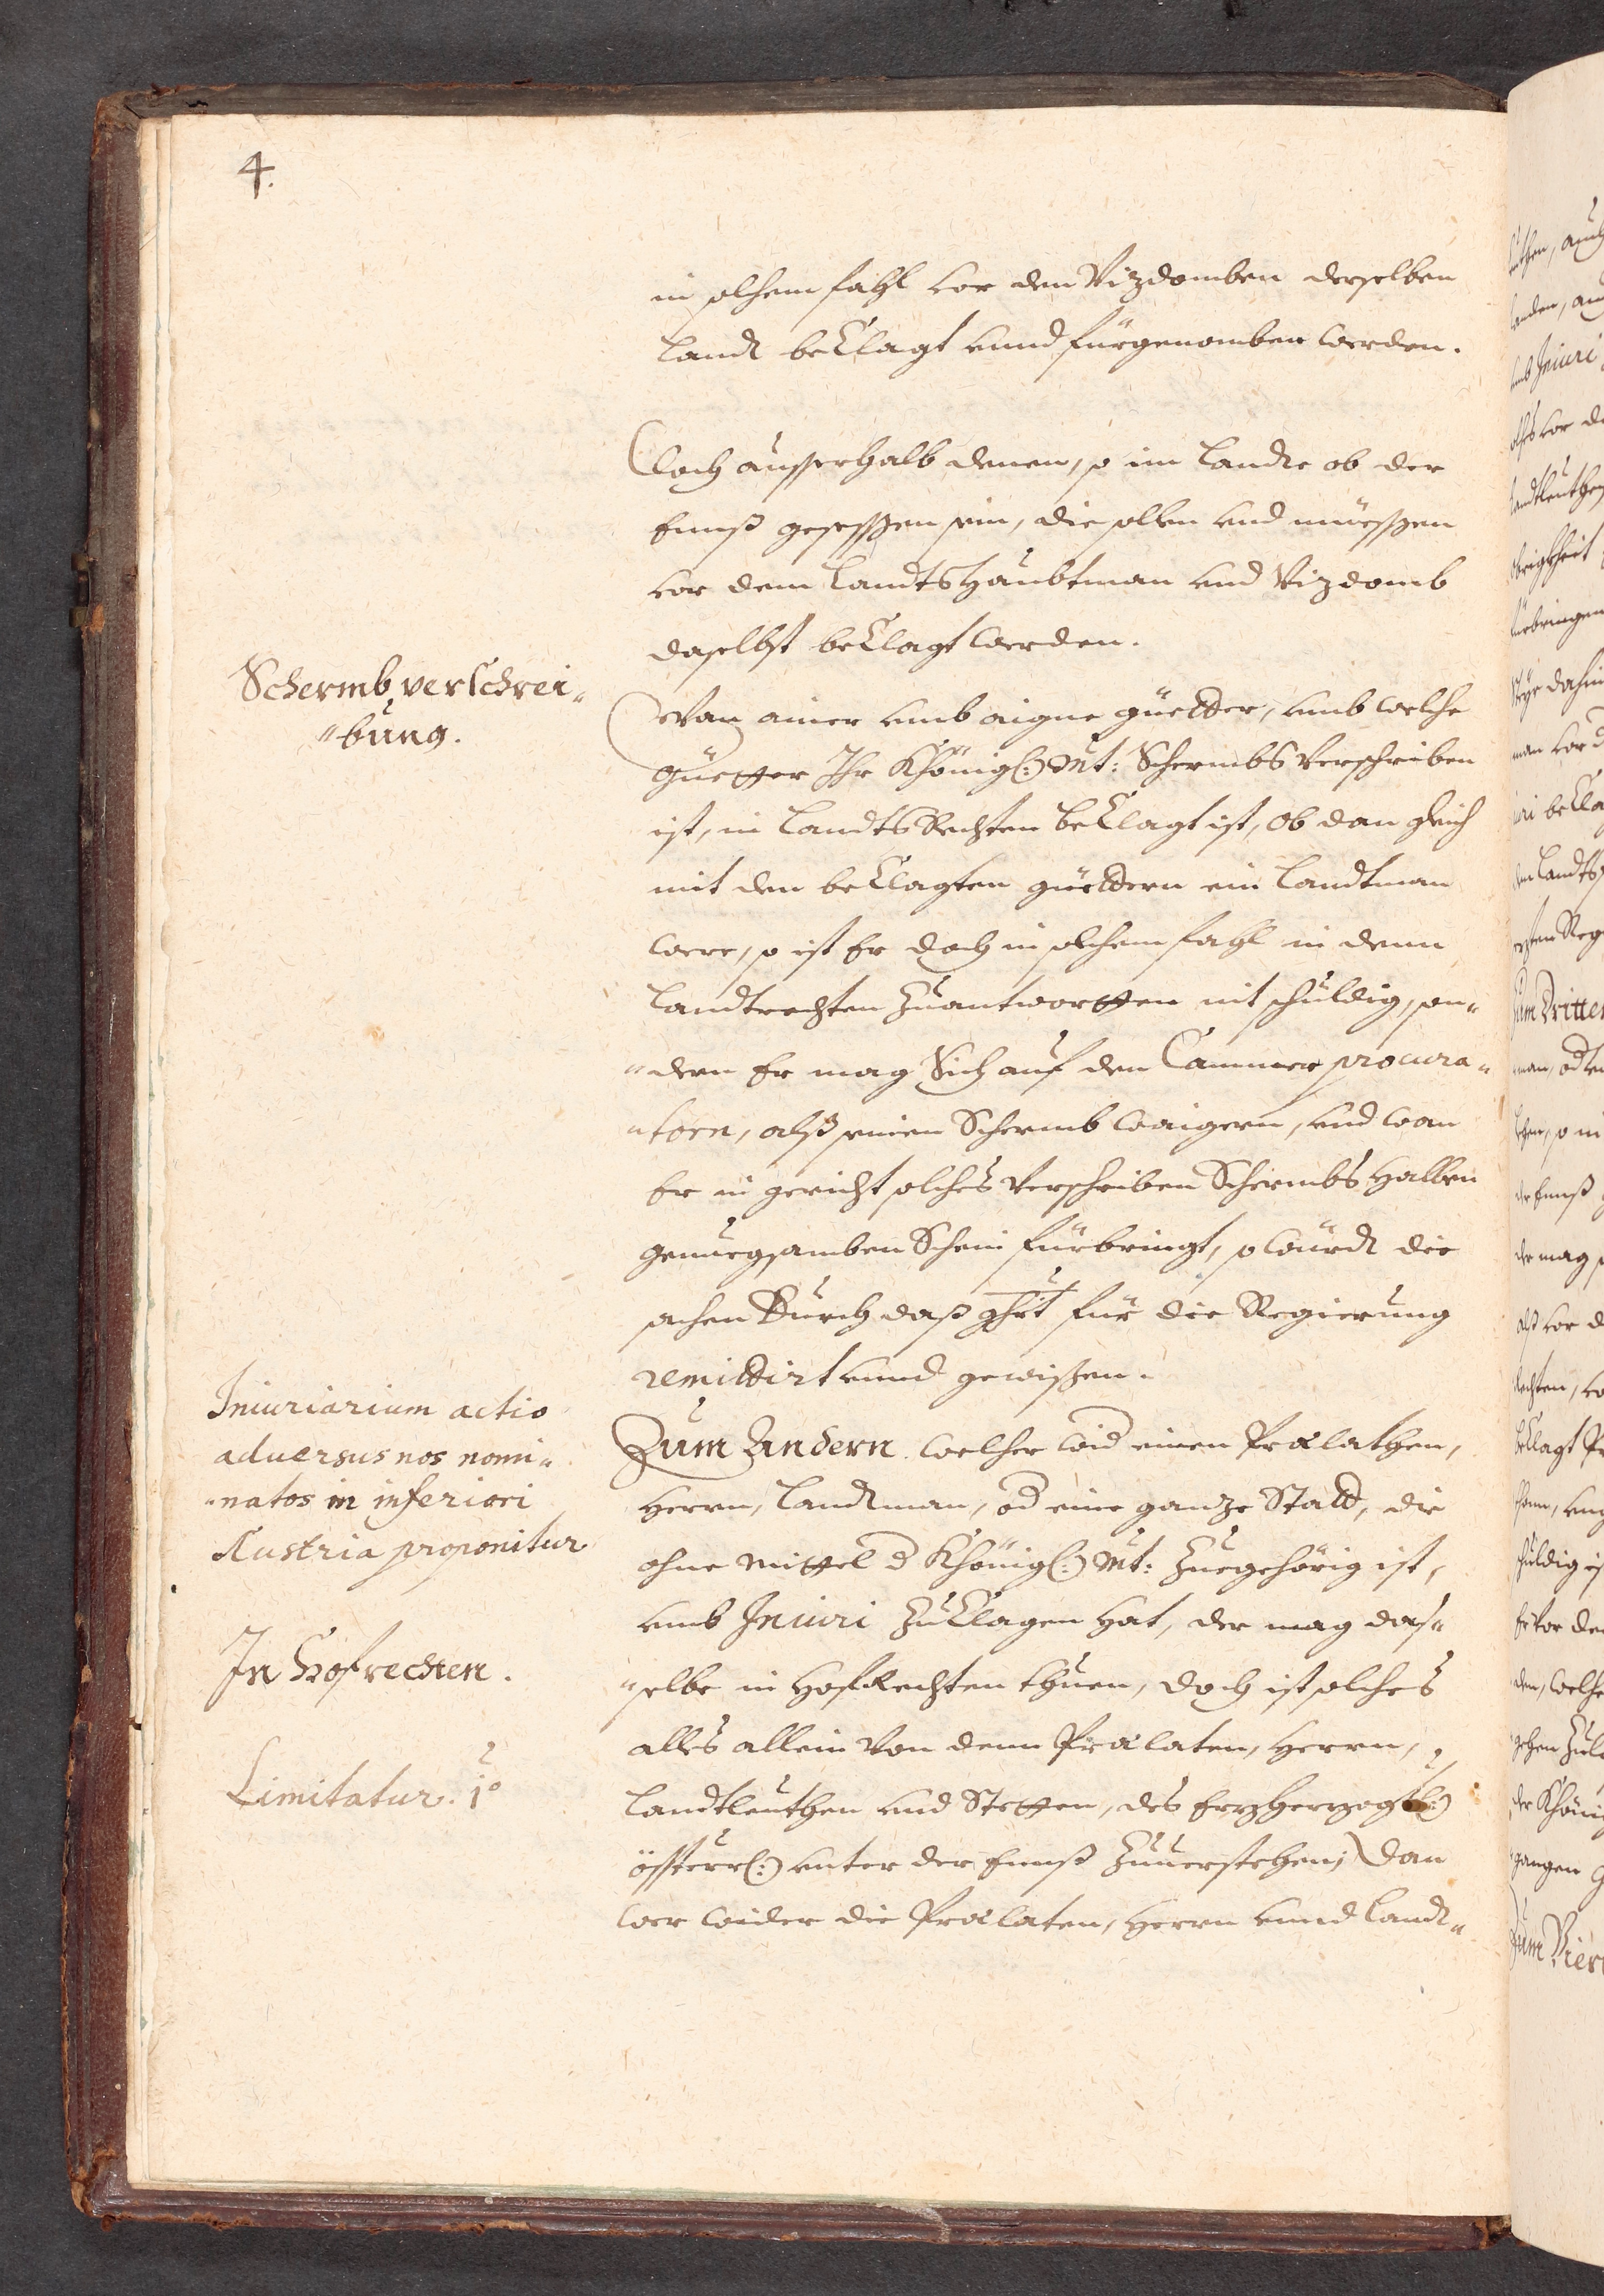 4.
in solchem fahl vor den Vizdomben derselben
Landt beclagt unnd fürgenomben werden.
Doch ausserhalb denen, so im Landte ob der
Ennß gesessßen sein, die sollen und müessßen
vor dem Landtshaubtman und Vizdomb
daselbst beclagt werden.
Schermb verschrei-
-bung.
Wan ainer umb aigne güetter, umb welche
güetter Ihr Khönigl: Mt: Schermbs verschriben
ist, in Landts Rechten beclagt ist, ob dan gleich
mit den beclagten güettern ein Landtman
were, so ist Er doch in solchem fahl in denn
Landtrechten zuantwortten nit schuldig, son-
-dern Er mag sich auf den Cammer procura-
-torn, alß seinen Schermb waigern, und wan
Er in gericht solches verschriben Schermbs halben
genuegsamben Schein fürbringt, so würdt die
sachen durch daß ghrt für die Regierung
remittirt unnd gewißen.
Iniuriarium actio
aduersus nos nomi-
-natos in inferiori
Austria proponitur
In Hofrechten.
Limitatur. 1º
Zum Andern. welcher wid einen Prælathen,
Herrn, Landtman, od eine ganze Statt, die
ohne mittel d Khönigl: Mt: zuegehörig ist,
umb Iniuri zu clagen hat, der mag das-
-selbe in HofRechten thuen, doch ist solches
alles allein von denn Prælaten, Herrn,
Landtleuthen und Stetten, des Erzherzogt:
össterr: unter der Ennß zuuerstehen; dan
wer wider die Prælaten, Herrn unnd Landt-